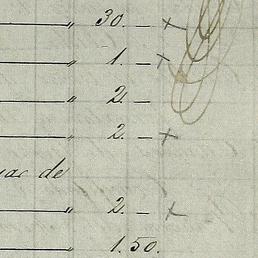 " 30. – x
" 1. – x
" 2. –
" 2. – x
de
" 2. – x
" 1. 50.